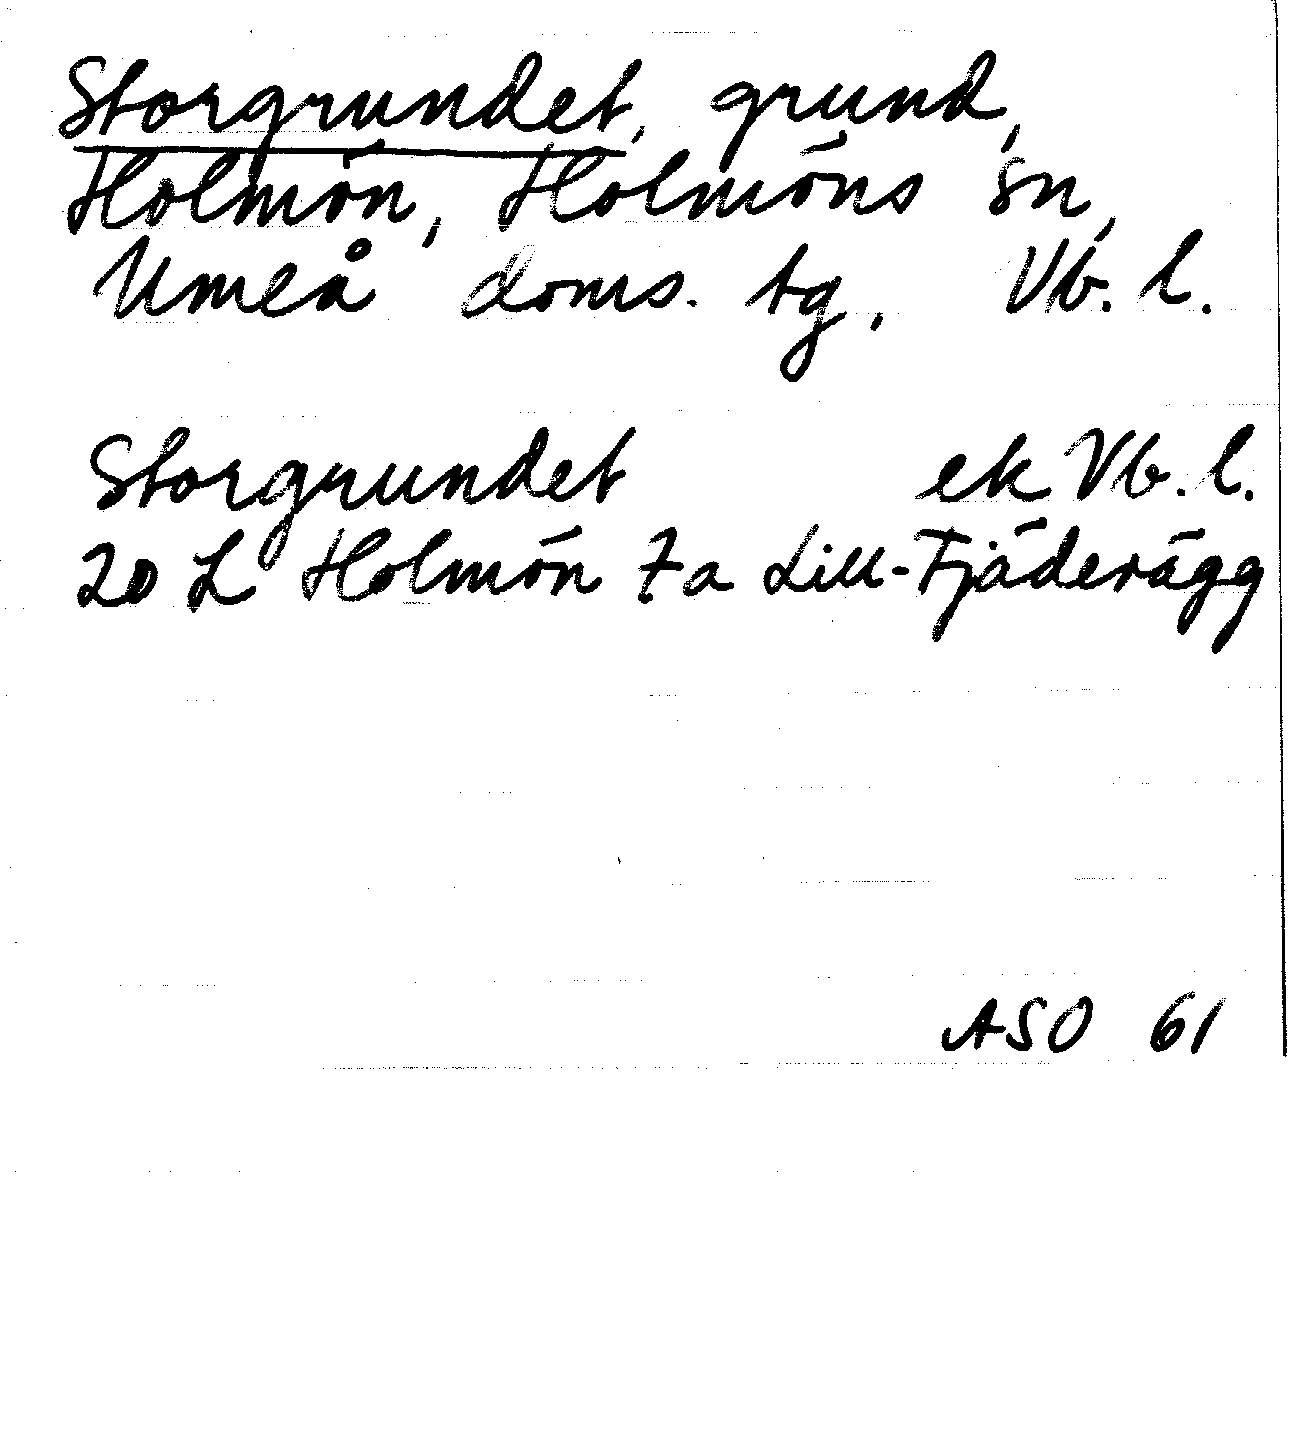 Storgrundet, grund,
Holmön, Holmöns sn,
Umeå doms. tg, Vb. l.
Storgrundet ek Vb. l.
20 L Holmön 7a Lill-Fjäderägg
ASO 61